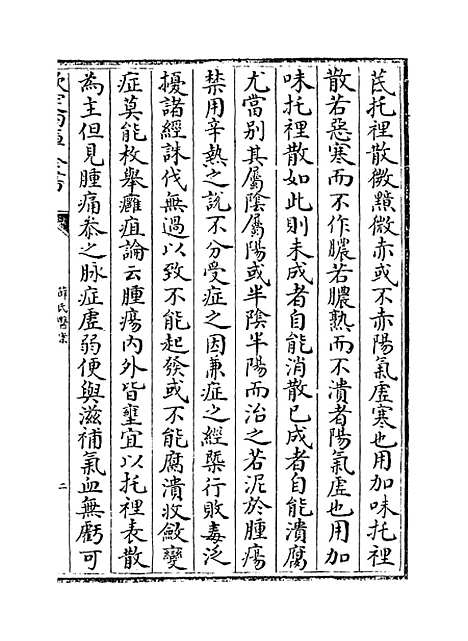 芪托裡散微黯微赤或不赤陽氣虛寒也用加味托裡
散若惡寒而不作膿若膿熟而不潰者陽氣虛也用加
味托裡散如此則未成者自能消散已成者自能潰腐
尤當別其屬陰屬陽或半陰半陽而治之若泥於腫瘍
禁用辛熱之說不分受症之因兼症之經槩行敗毒泛
擾諸經誅伐無過以致不能起發或不能腐潰收斂變
症莫能枚舉癰疽論云腫瘍内外皆壅宜以托裡表散
為主但見腫痛叅之脉症虛弱便與滋補氣血無虧可
欽定四庫全書
薛氏醫案
二